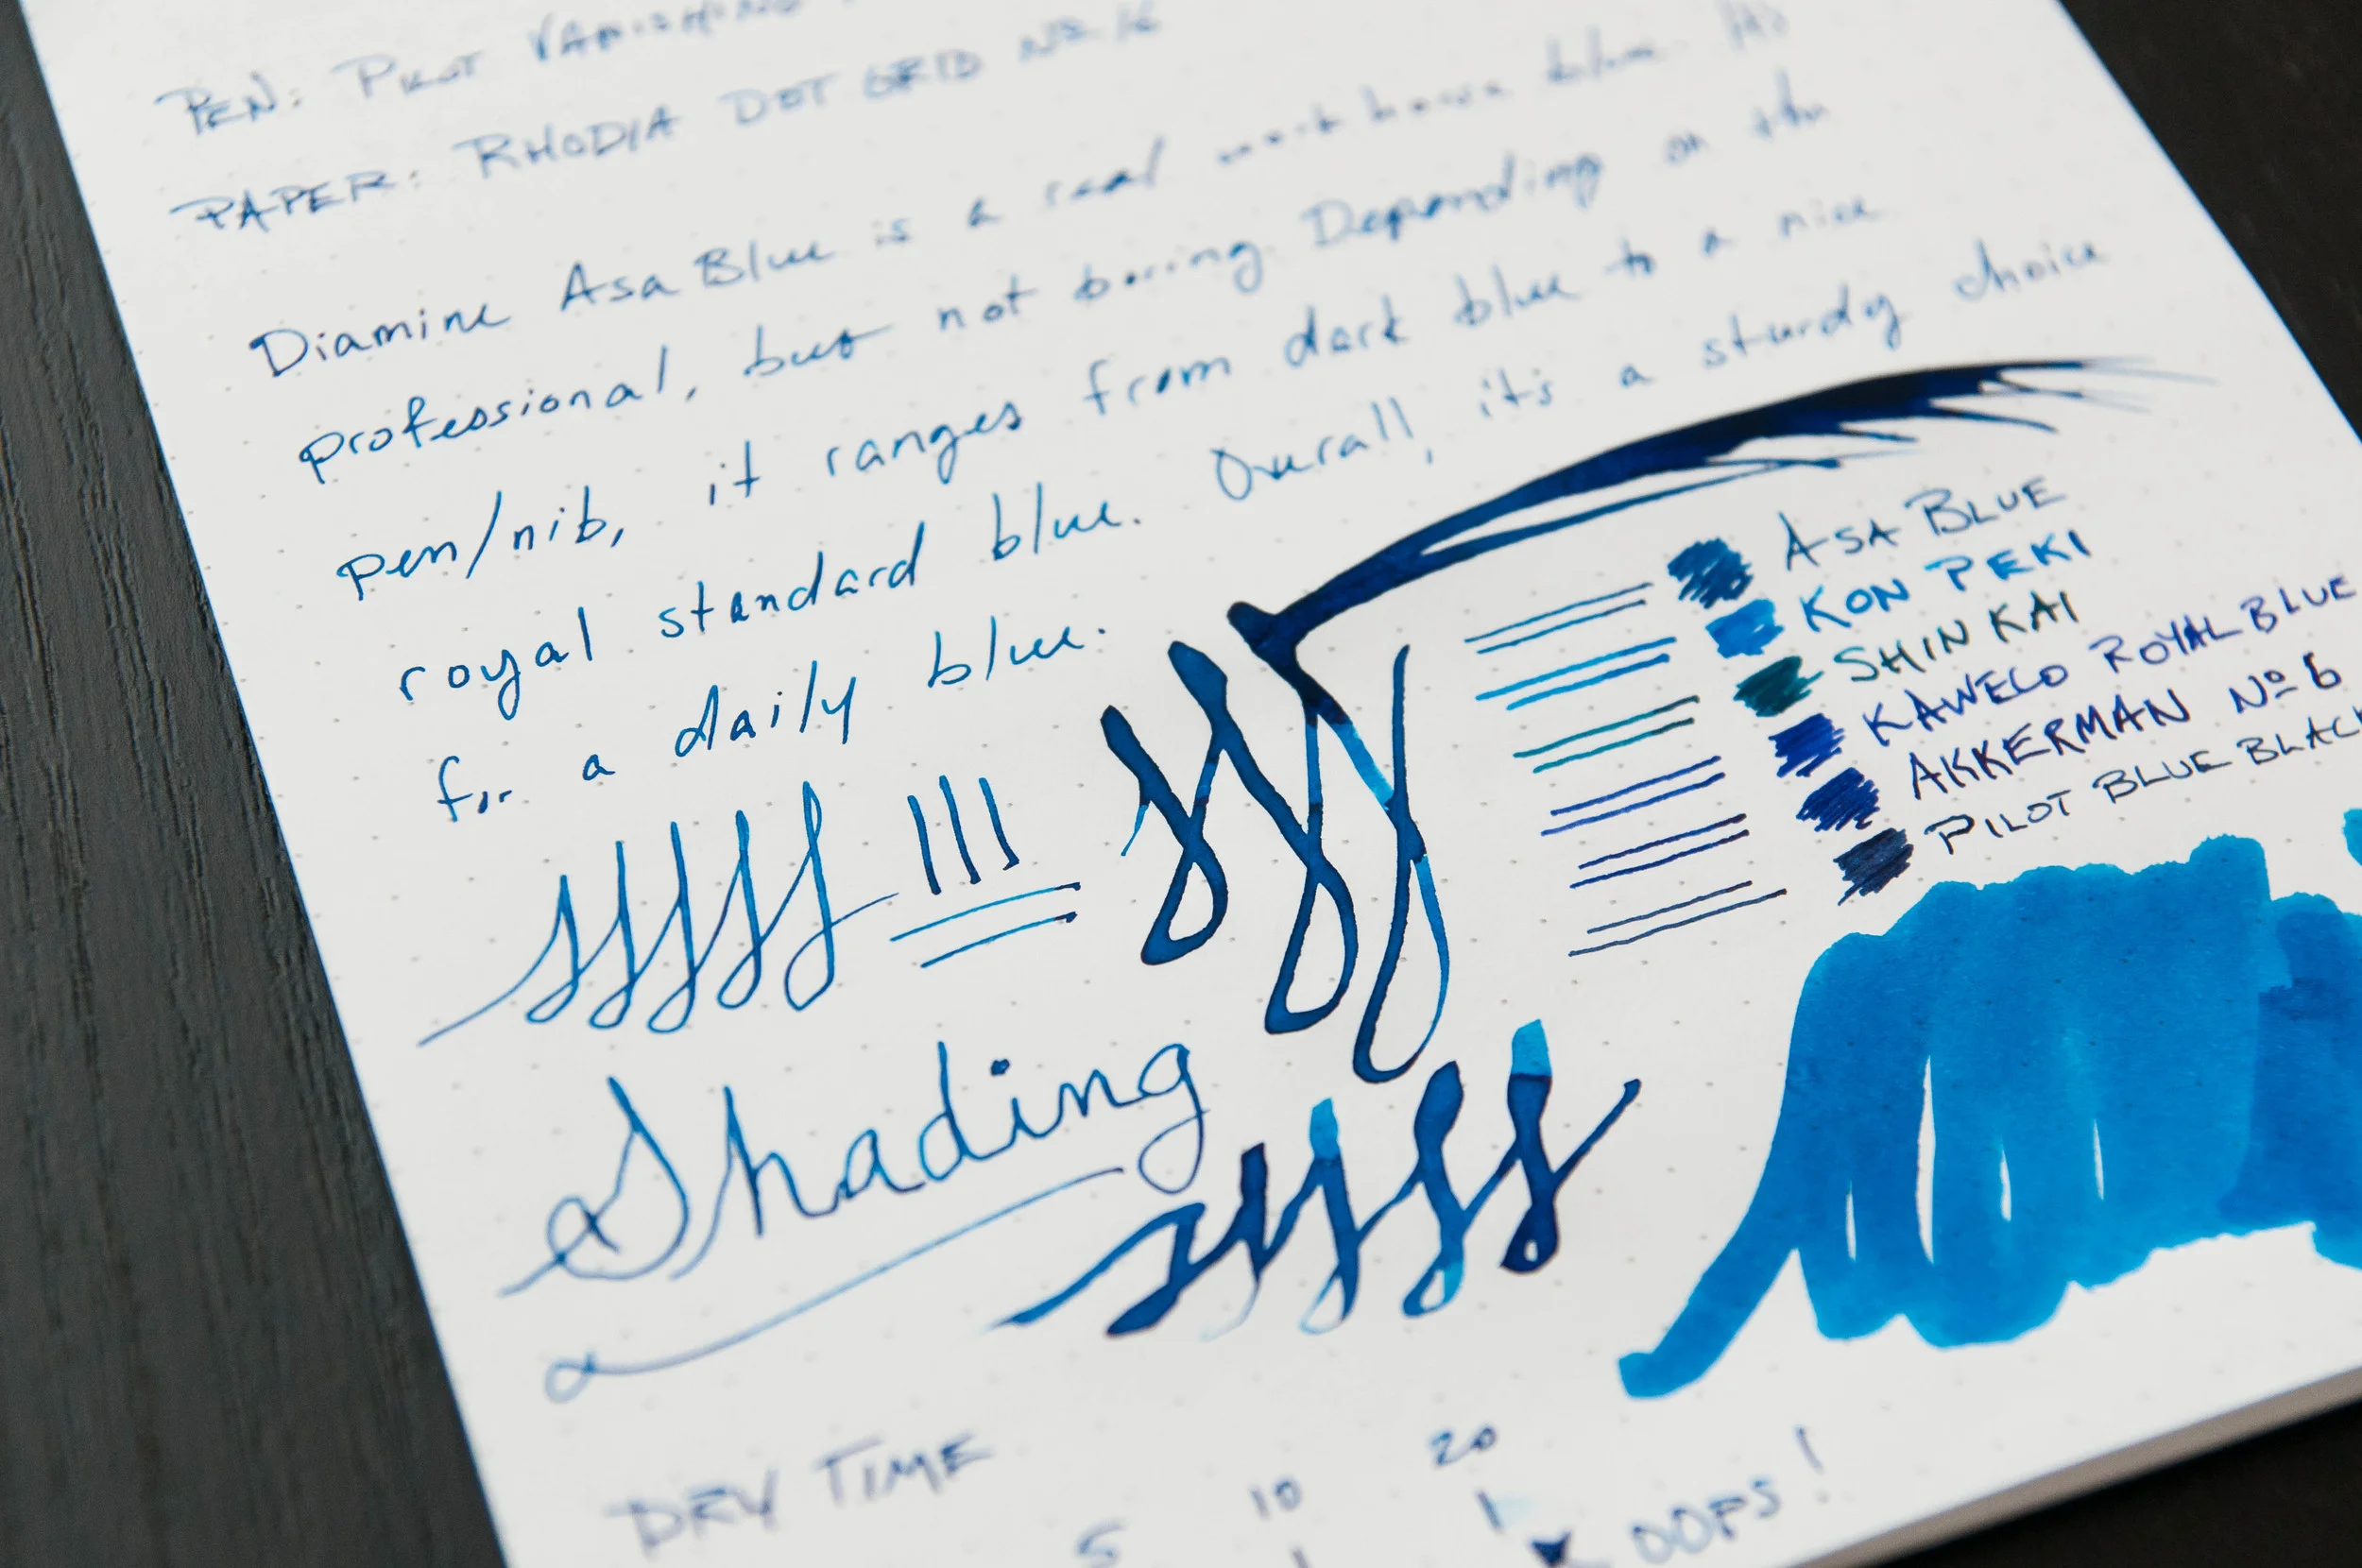 PEN: PILOT VANISHING
PAPER: RHODIA DOT GRID Nº 16
Diamine Asa Blue is a real work horse blue. It's
professional, but not boring. Depending on the
pen/nib, it ranges from dark blue to a nice
royal standard blue. Overall, it's a sturdy choice
for a daily blue.
ASA BLUE
KON PEKI
SHIN KAI
KAWECO ROYAL BLUE
AKKERMAN Nº 6
PILOT BLUE BLACK
Shading
DRY TIME
5 10 20
OOPS!